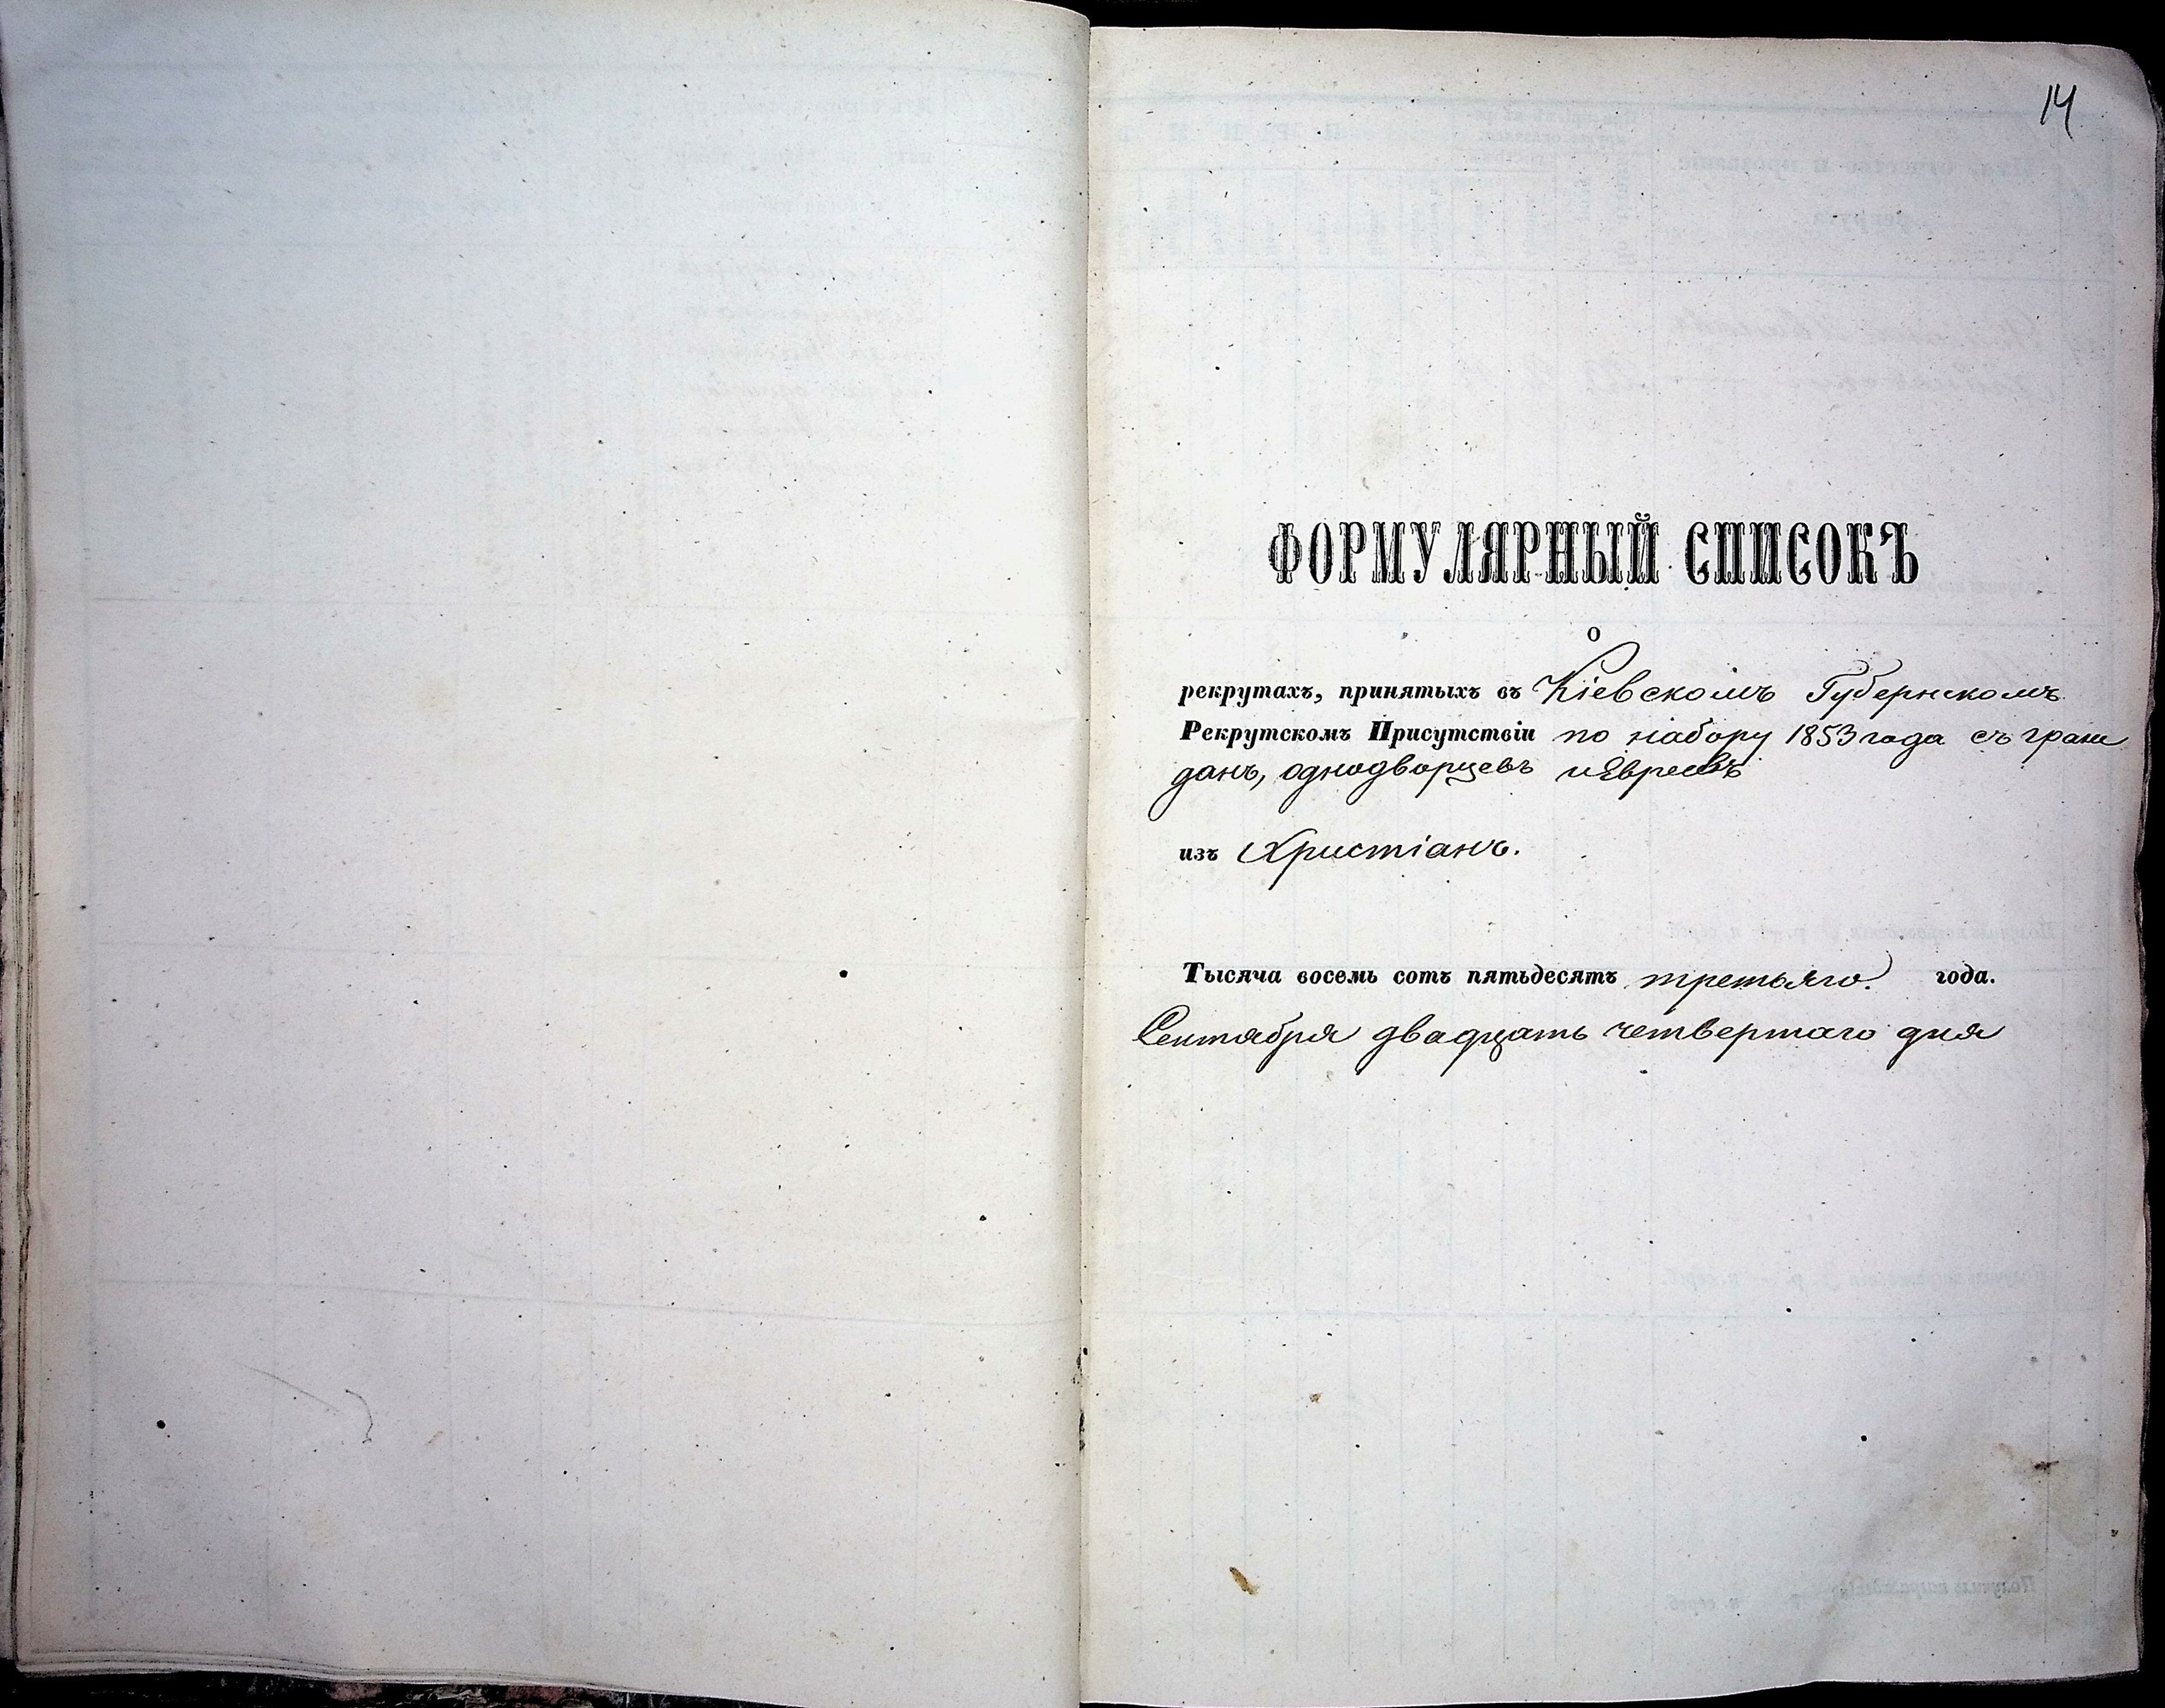 14
ФОРМУЛЯРНЫЙ СПИСОКЪ
о
рекрутахъ, принятыхъ въ Кіевскомъ Губернскомъ
Рекрутскомъ Присутствіи по набору 1853 года съ граж
данъ, однодворцевъ и Евреевъ
изъ Христіанъ.
Тысяча восемь сотъ пятьдесятъ третьяго. года.
Сентября двадцать четвертаго дня